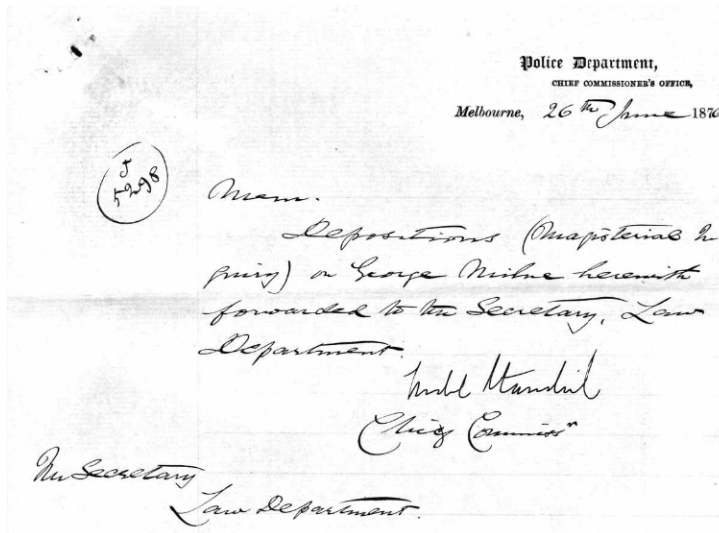 Police Department,
CHIEF COMMISSIONER'S OFFICE,
Melbourne, 26th June 1876
J
5298
Mem.
Depositions (Magisterial In
quiry) on George Milne herewith
forwarded to the Secretary, Law
Department.
Chief Commissr
The Secretary
Law Department.